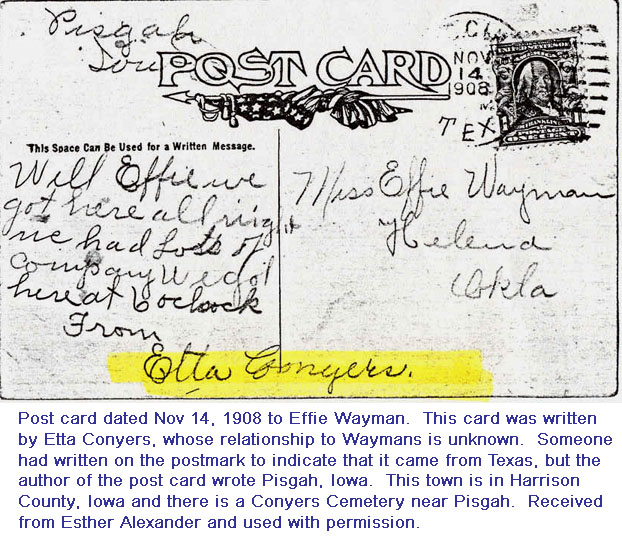 Pisgah
Iow
POST CARD
NOV
14
1908
M
TEX
FRANKLIN
This Space Can Be Used for a Written Message.
Well Effie we
got here all right
we had Lots of
company We got
here at 6 oclock
From
Etta Conyers.
Miss Effie Wayman
Helena
Okla
Post card dated Nov 14, 1908 to Effie Wayman.  This card was written
by Etta Conyers, whose relationship to Waymans is unknown.  Someone
had written on the postmark to indicate that it came from Texas, but the
author of the post card wrote Pisgah, Iowa.  This town is in Harrison
County, Iowa and there is a Conyers Cemetery near Pisgah.  Received
from Esther Alexander and used with permission.